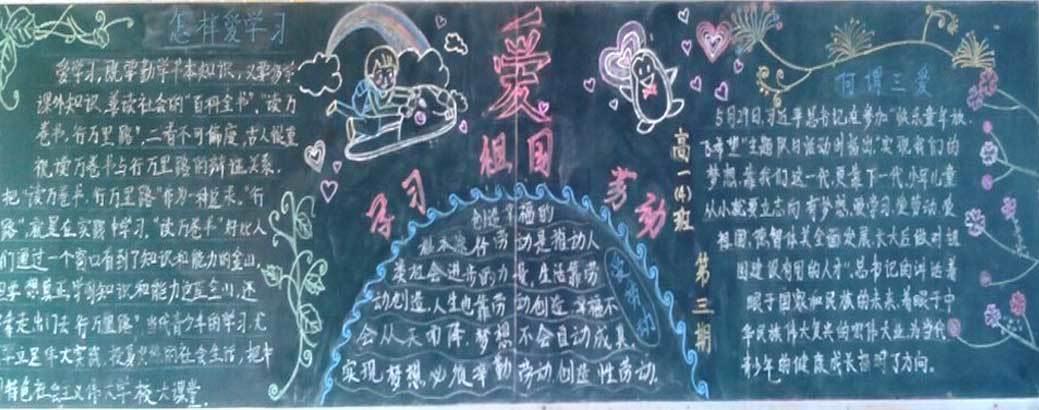 怎样爱学习
爱学习,既要勤学书本知识,又要多学
课外知识,善读社会的“百科全书”。“读万
卷书,行万里路”,二者不可偏废,古人很重
视读万卷书与行万里路的辩证关系,
把“读万卷书,行万里路”作为一种追求。“行
路”,就是在实践中学习。“读万卷书”好比人
们通过一个窗口看到了知识和能力的金山,
想真正学到知识和能力这座金山,还
走出门去“行万里路”。当代青少年的学习,尤
立足伟大实践,投身的社会生活,把中
特色社会主义伟大学校大课堂。
爱
祖国
学习
劳动
创造幸福的
根本途径劳动是推动人
类社会进步的力量,生活靠劳
动创造,人生也靠劳动创造,幸福不
会从天而降,梦想不会自动成真,
实现梦想,必须辛勤劳动创造性劳动。
高一(4)班
第三期
何谓三爱
5月29日,习近平总书记在参加“快乐童年放
飞希望”主题队日活动时指出,“实现我们的
梦想,靠我们这一代,更靠下一代,少年儿童
从小就要立志向、有梦想,爱学习、爱劳动、爱
祖国,德智体美全面发展,长大后做对祖
国建设有用的人才”。总书记的讲话着
眼于国家和民族的未来,着眼于中
华民族伟大复兴的宏伟大业,为当代
青少年的健康成长指明了方向。